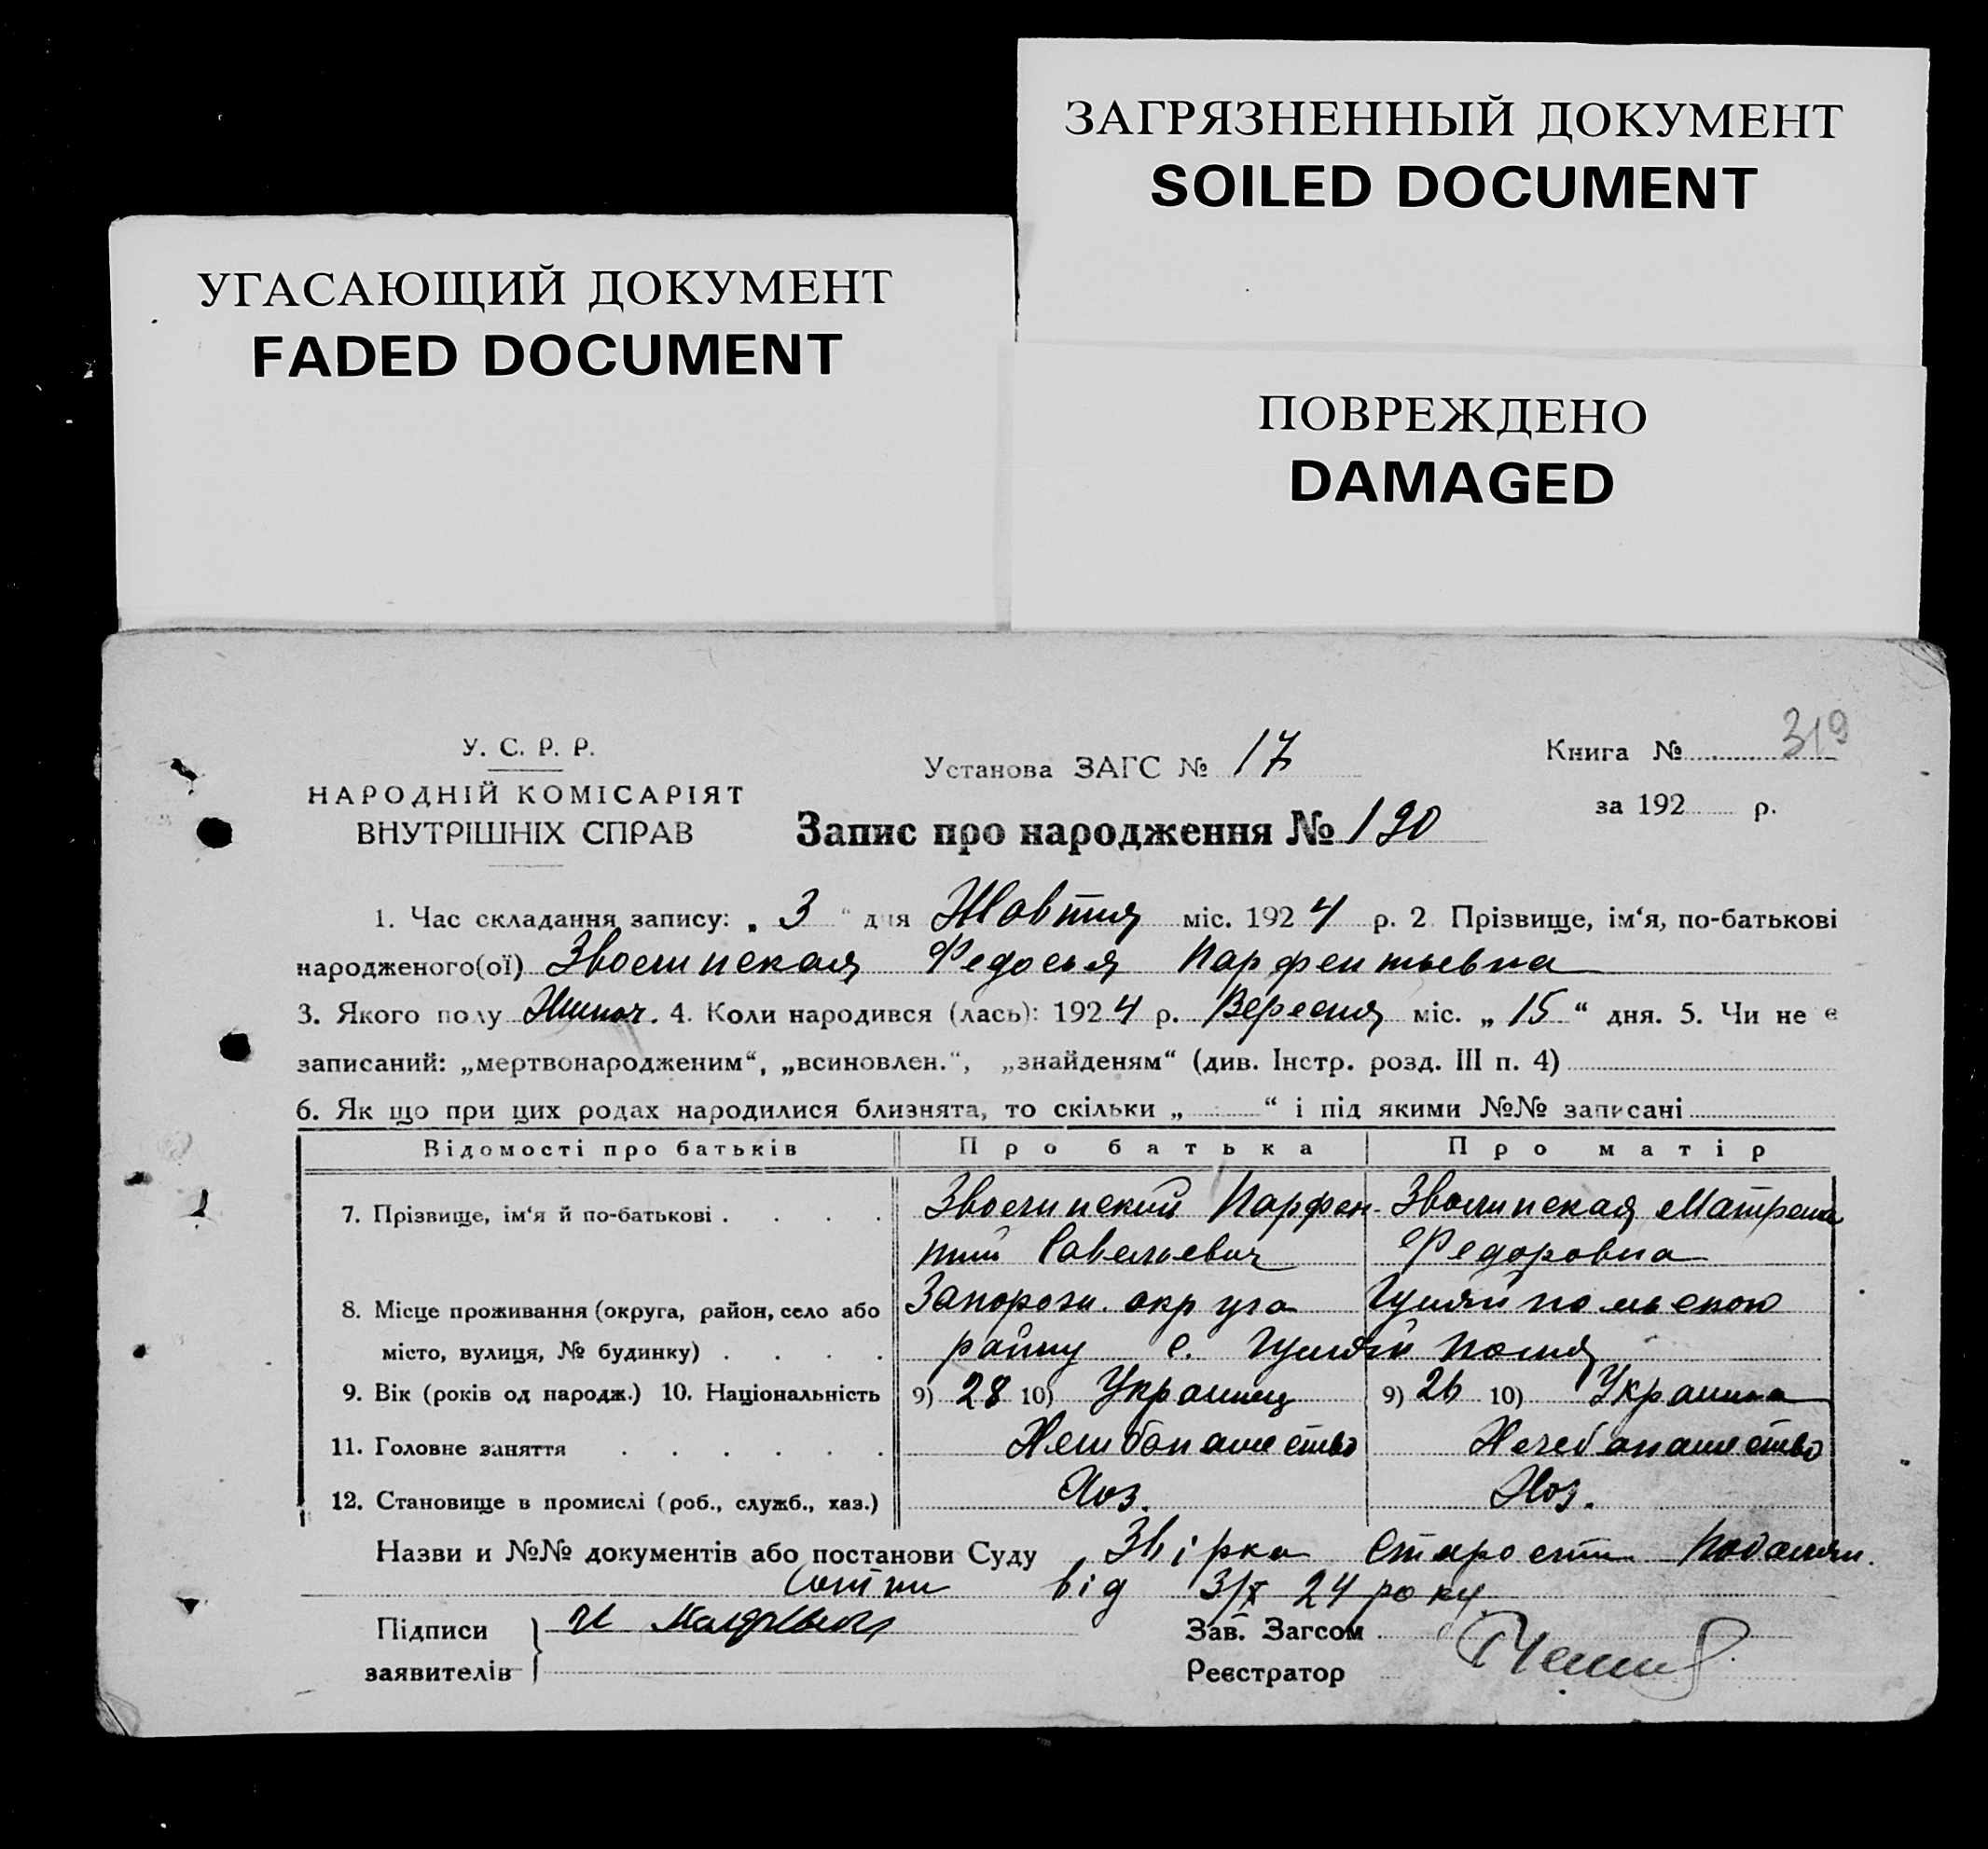 ЗАГРЯЗНЕННЫЙ ДОКУМЕНТ
SOILED DOCUMENT
УГАСАЮЩИЙ ДОКУМЕНТ
FADED DOCUMENT
ПОВРЕЖДЕНО
DAMAGED
319
У. С. Р. Р.
НАРОДНІЙ КОМІСАРІЯТ
ВНУТРІШНІХ СПРАВ
Установа ЗАГС № 17
Запис про народження № 190
Книга №
за 192 р.
1. Час складання запису: „ 3 “ дня Жовтня міс. 1924 р. 2 Прізвище, ім‘я, по-батькові
народженого(ої) Звоелинская Федосья Парфентьевна
3. Якого полу Жиноч. 4. Коли народився (лась): 1924 р. Вересня міс. „ 15 “ дня. 5. Чи не є
записаний: „мертвонародженим“, „всиновлен.“, „знайденям“ (див. Інстр. розд. III п. 4)
6. Як що при цих родах народилися близнята, то скільки „ “ і під якими №№ записані
Відомості про батьків Про батька Про матір
7. Прізвище, ім‘я й по-батькові . . . . Парфен- Матрена
тий Савельевич Федоровна
8. Місце проживання (округа, район, село або Запорож. округа Гуляйпольского
місто, вулиця, № будинку) . . . . району с. Гуляй Поля
9. Вік (років од народж.) 10. Національність 9) 28 10) Украинец 9) 26 10) Украинка
11. Головне заняття . . . . . . Хлебопашество Хлебопашество
12. Становище в промислі (роб., служб., хаз.) Хоз. Хоз.
Назви и №№ документів або постанови Суду Звірка
від 3/X 24 року
Підписи
заявителів
Зав. Загсом
Реєстратор